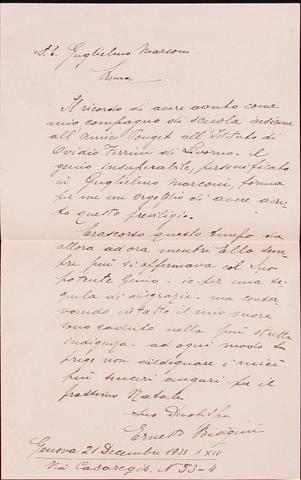 S.E. Guglielmo Marconi
Roma
Il ricordo di avere avuto come
mio compagno di scuola insieme
all'amico Pouget all'Istituto di
Ovidio Ferrini di Livorno. il
genio insuperabile, personificato
in Guglielmo Marconi, forma
per me un orgoglio di avere avu-
to questo privilegio.
Trascorso questo tempo da
allora ad ora mentre Ella sem-
pre più si affermava col Suo
potente Genio - io per una se-
guela di disgrazie - ma conser-
vando intatto il mio onore
sono caduto nella più stretta
indigenza - ad ogni modo La
prego non disdegnare i miei
più sinceri auguri per il
prossimo Natale
Suo
Ernesto Biagini
Genova 21 Decembre 1935 XIV
Via Casaregis. N 53-4